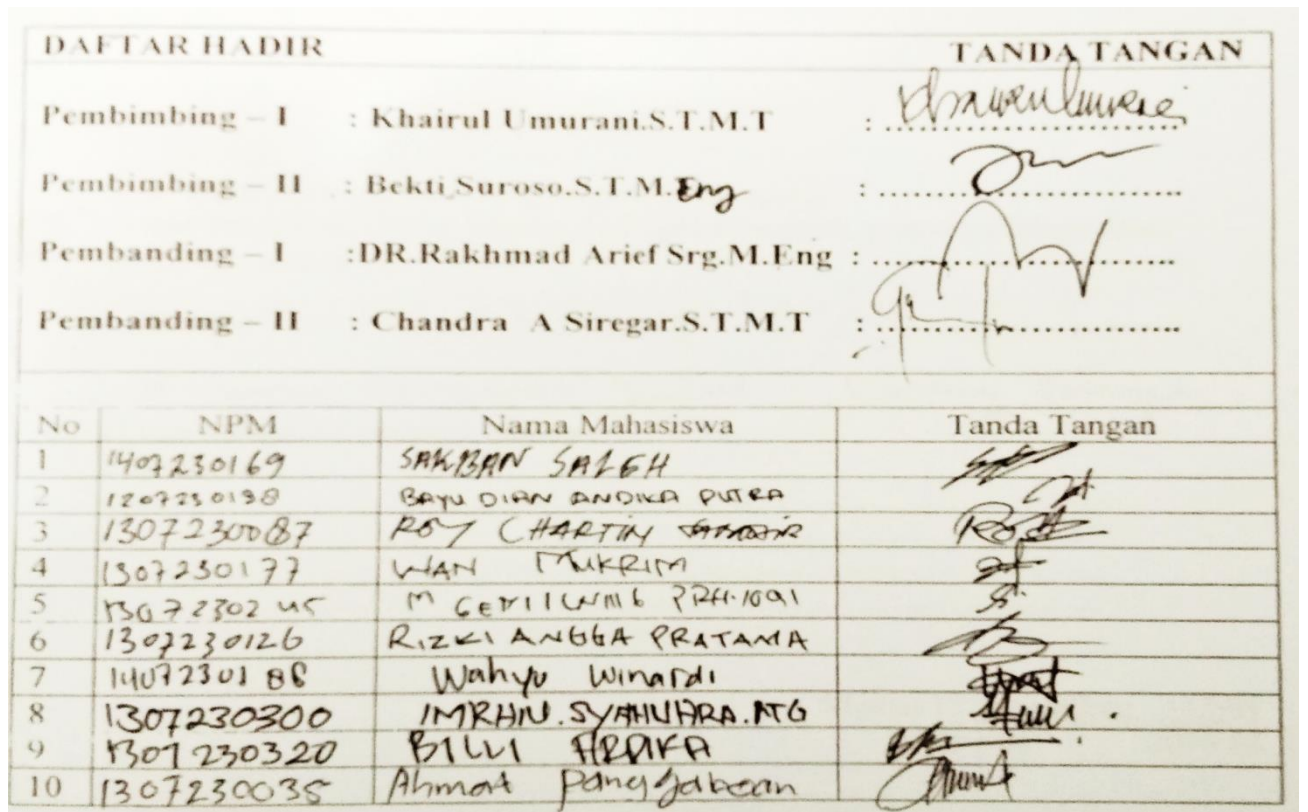 DAFTAR HADIR TANDA TANGAN
Pembimbing – I : Khairul Umurani.S.T.M.T : ..............................
Pembimbing – II : Bekti Suroso.S.T.M.Eng : ..............................
Pembanding – I :DR.Rakhmad Arief Srg.M.Eng : ..............................
Pembanding – II : Chandra A Siregar.S.T.M.T : ..............................
No NPM Nama Mahasiswa Tanda Tangan
1 1407230169 SAKBAN SALEH
2 1207230138 BAYU DIAN ANDIKA PUTRA
3 1307230087 ROY CHARTIN
4 1307230177 WAN MUKRIM
5 1307230245 M
6 1307230126 RIZKI ANGGA PRATAMA
7 1407230188 Wahyu Winardi
8 1307230300 IMRAN.SYAHUHRA.NTG
9 1307230320 BILLI ARDIKA
10 1307230035 Ahmat Panggabean